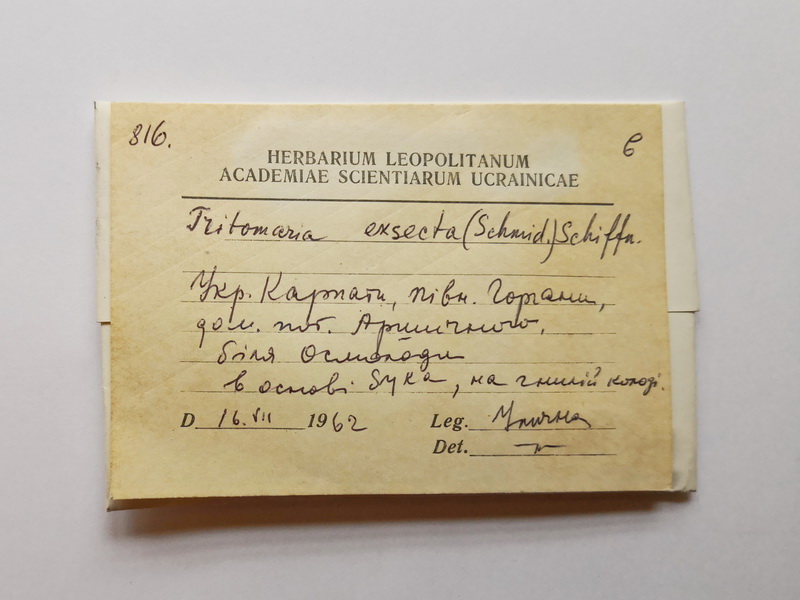 816. 6
HERBARIUM LEOPOLITANUM
ACADEMIAE SCIENTIARUM UCRAINICAE
Tritomaria exsecta (Schmid.) Schiffn.
Укр. Карпати, півн. Горгани,
дол. пот. Аршичного,
біля Осмолоди
в основі бука, на гнилій колоді.
D 16.VII 1962 Leg. Улична
Det. —"—